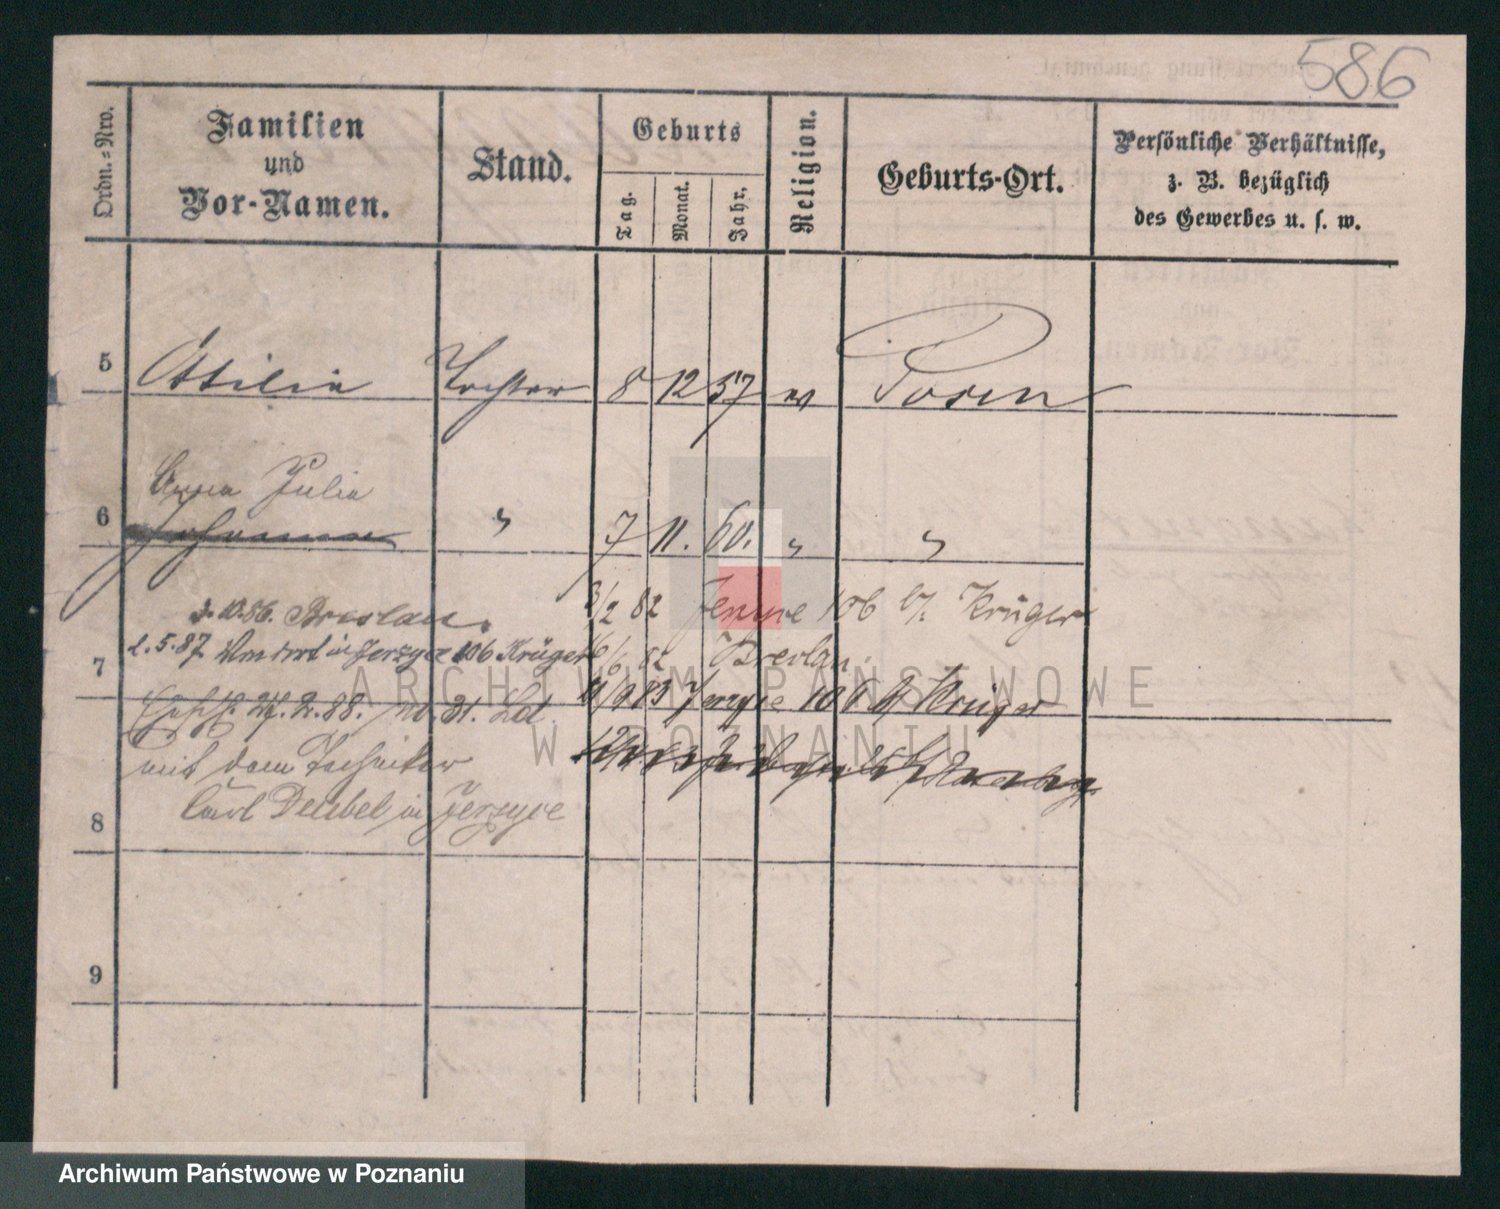 586
Ordn.-Nro.
Familien
und
Vor-Namen.
Stand.
Geburts
Tag.
Monat.
Jahr.
Religion.
Geburts-Ort.
Persönliche Verhältnisse,
z. B. bezüglich
des Gewerbes u. s. w.
5 Ottilia Tochter 8 12 57 Posen
Anna Julia
6 Johanna " 7 11. 60. " "
10.86. Breslau.
3/2 82 Jerzyce 106 b/. Krüger
2.5.87. in Jerzyce 106 Krüger
7
82 Breslau.
9 83 Jerzyce 106 Krüger
24.2.88. No. 31.
mit dem Techniker
Carl Deubel in Jerzyce
8
9
ARCHIWUM PAŃSTWOWE
W POZNANIU
Archiwum Państwowe w Poznaniu